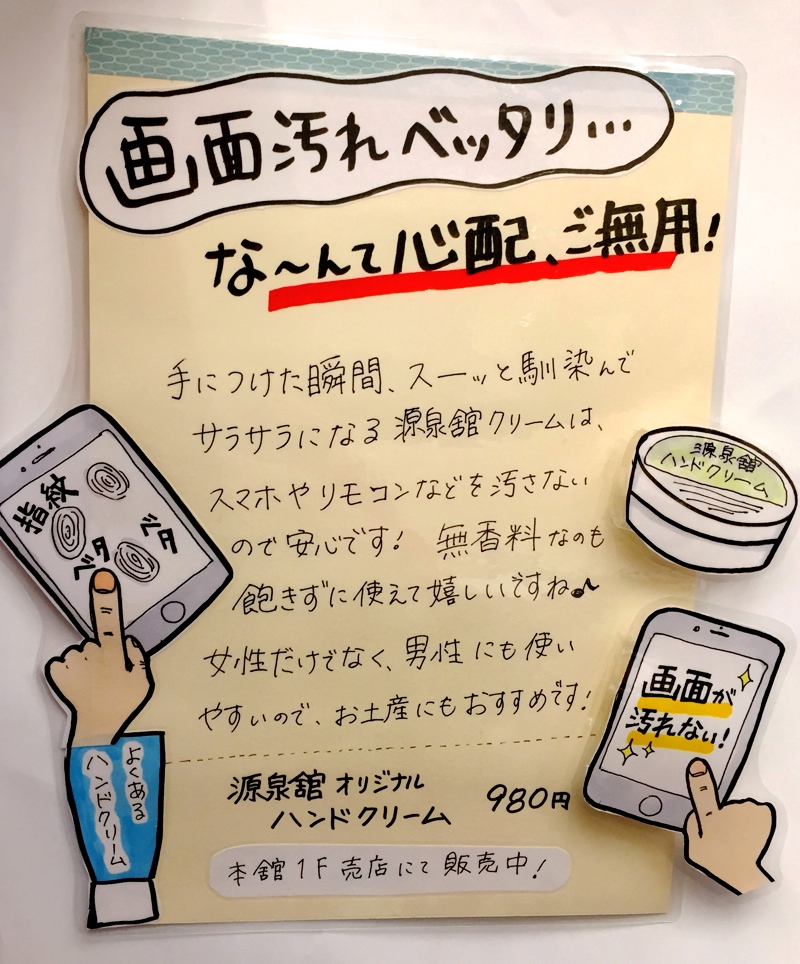 画面汚れベッタリ…
な〜んて心配、ご無用!
手につけた瞬間、スーッと馴染んで
サラサラになる源泉舘クリームは、
スマホやリモコンなどを汚さない
ので安心です! 無香料なのも
飽きずに使えて嬉しいですね♪
女性だけでなく、男性にも使い
やすいので、お土産にもおすすめです!
指紋
ベタ
ベタ
よくある
ハンドクリーム
源泉舘
ハンドクリーム
画面が
汚れない!
源泉舘 オリジナル
ハンドクリーム 980円
本舘1F売店にて販売中!